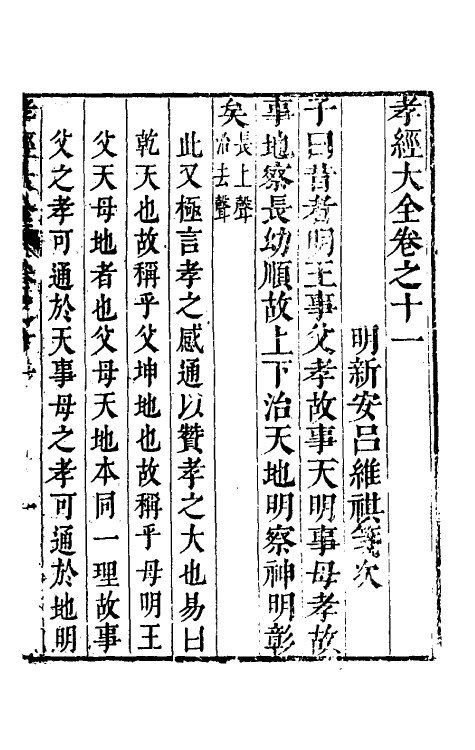 孝經大全卷之十一
明新安呂維祺箋次
子曰昔者明王事父孝故事天明事母孝故
事地察長幼順故上下治天地明察神明彰
矣長上聲治去聲
此又極言孝之感通以贊孝之大也易曰
乾天也故稱乎父坤地也故稱乎母明王
父天母地者也父母天地本同一理故事
父之孝可通於天事母之孝可通於地明